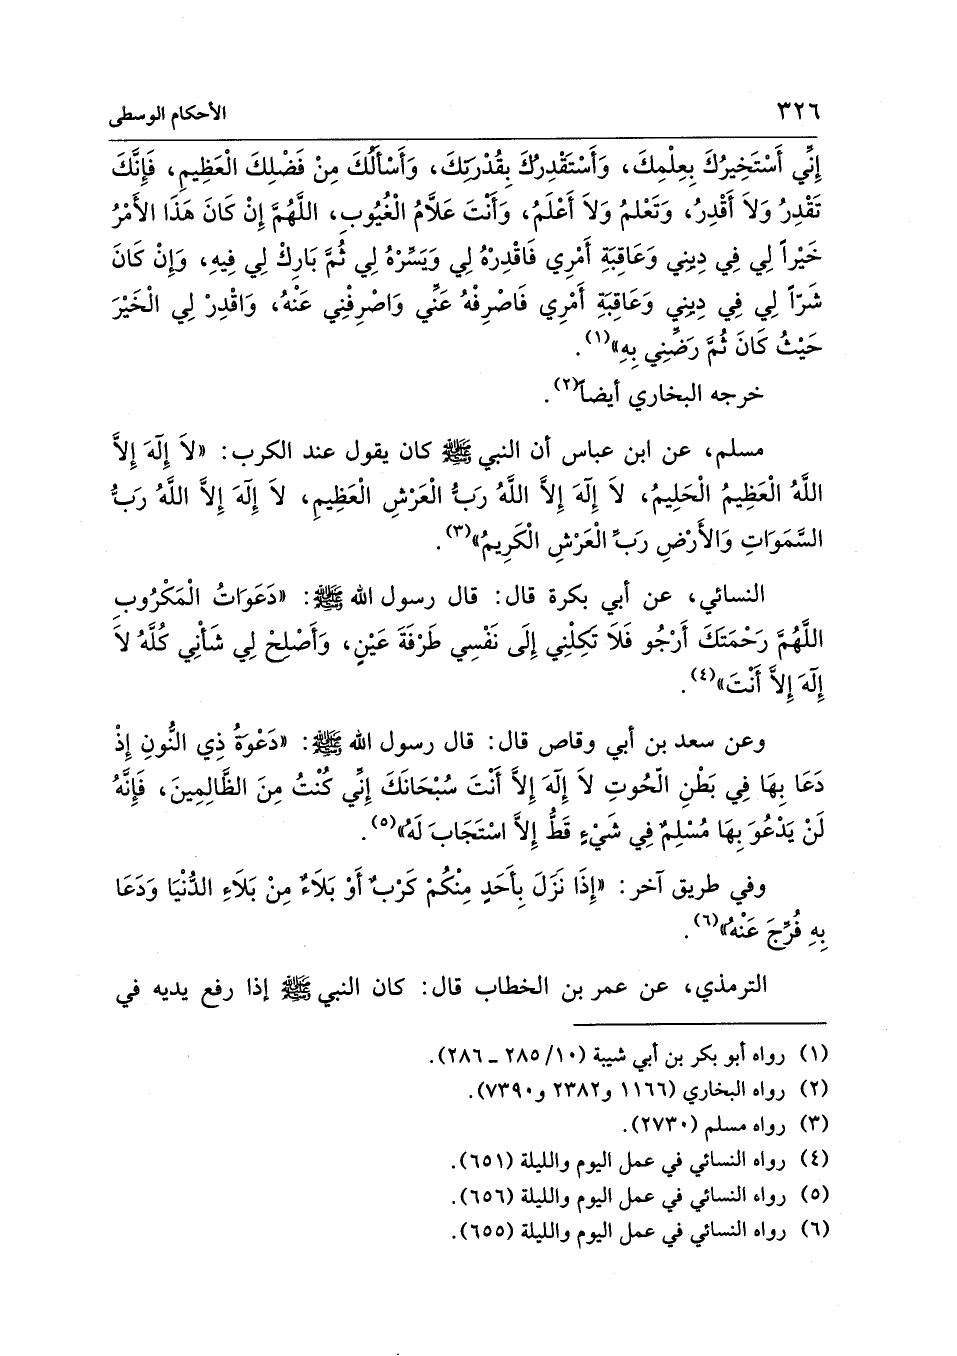 ٣٢٦ الأحكام الوسطى
إِنِّي أَسْتَخِيرُكَ بِعِلْمِكَ، وَأَسْتَقْدِرُكَ بِقُدْرَتِكَ، وَأَسْأَلُكَ مِنْ فَضْلِكَ الْعَظِيمِ، فَإِنَّكَ
تَقْدِرُ وَلاَ أَقْدِرُ، وَتَعْلَمُ وَلاَ أَعْلَمُ، وَأَنْتَ عَلاَّمُ الْغُيُوبِ، اللَّهُمَّ إِنْ كَانَ هَذَا الأَمْرُ
خَيْراً لِي فِي دِينِي وَعَاقِبَةِ أَمْرِي فَاقْدِرْهُ لِي وَيَسِّرْهُ لِي ثُمَّ بَارِكْ لِي فِيهِ، وَإِنْ كَانَ
شَرّاً لِي فِي دِينِي وَعَاقِبَةِ أَمْرِي فَاصْرِفْهُ عَنِّي وَاصْرِفْنِي عَنْهُ، وَاقْدِرْ لِي الْخَيْرَ
حَيْثُ كَانَ ثُمَّ رَضِّنِي بِهِ»(١).
خرجه البخاري أيضاً(٢).
مسلم، عن ابن عباس أن النبي ﷺ كان يقول عند الكرب: «لاَ إِلَهَ إِلاَّ
اللَّهُ الْعَظِيمُ الْحَلِيمُ، لاَ إِلَهَ إِلاَّ اللَّهُ رَبُّ الْعَرْشِ الْعَظِيمِ، لاَ إِلَهَ إِلاَّ اللَّهُ رَبُّ
السَّمَوَاتِ وَالأَرْضِ رَبِّ الْعَرْشِ الْكَرِيمُ»(٣).
النسائي، عن أبي بكرة قال: قال رسول الله ﷺ: «دَعَوَاتُ الْمَكْرُوبِ
اللَّهُمَّ رَحْمَتَكَ أَرْجُو فَلاَ تَكِلْنِي إِلَى نَفْسِي طَرْفَةَ عَيْنٍ، وَأَصْلِحْ لِي شَأْنِي كُلَّهُ لاَ
إِلَهَ إِلاَّ أَنْتَ»(٤).
وعن سعد بن أبي وقاص قال: قال رسول الله ﷺ: «دَعْوَةُ ذِي النُّونِ إِذْ
دَعَا بِهَا فِي بَطْنِ الْحُوتِ لاَ إِلَهَ إِلاَّ أَنْتَ سُبْحَانَكَ إِنِّي كُنْتُ مِنَ الظَّالِمِينَ، فَإِنَّهُ
لَنْ يَدْعُوَ بِهَا مُسْلِمٌ فِي شَيْءٍ قَطُّ إِلاَّ اسْتَجَابَ لَهُ»(٥).
وفي طريق آخر: «إِذَا نَزَلَ بِأَحَدٍ مِنْكُمْ كَرْبٌ أَوْ بَلاَءٌ مِنْ بَلاَءِ الدُّنْيَا وَدَعَا
بِهِ فُرِّجَ عَنْهُ»(٦).
الترمذي، عن عمر بن الخطاب قال: كان النبي ﷺ إذا رفع يديه في
(١) رواه أبو بكر بن أبي شيبة (١٠/ ٢٨٥ ـ ٢٨٦).
(٢) رواه البخاري (١١٦٦ و٢٣٨٢ و٧٣٩٠).
(٣) رواه مسلم (٢٧٣٠).
(٤) رواه النسائي في عمل اليوم والليلة (٦٥١).
(٥) رواه النسائي في عمل اليوم والليلة (٦٥٦).
(٦) رواه النسائي في عمل اليوم والليلة (٦٥٥).